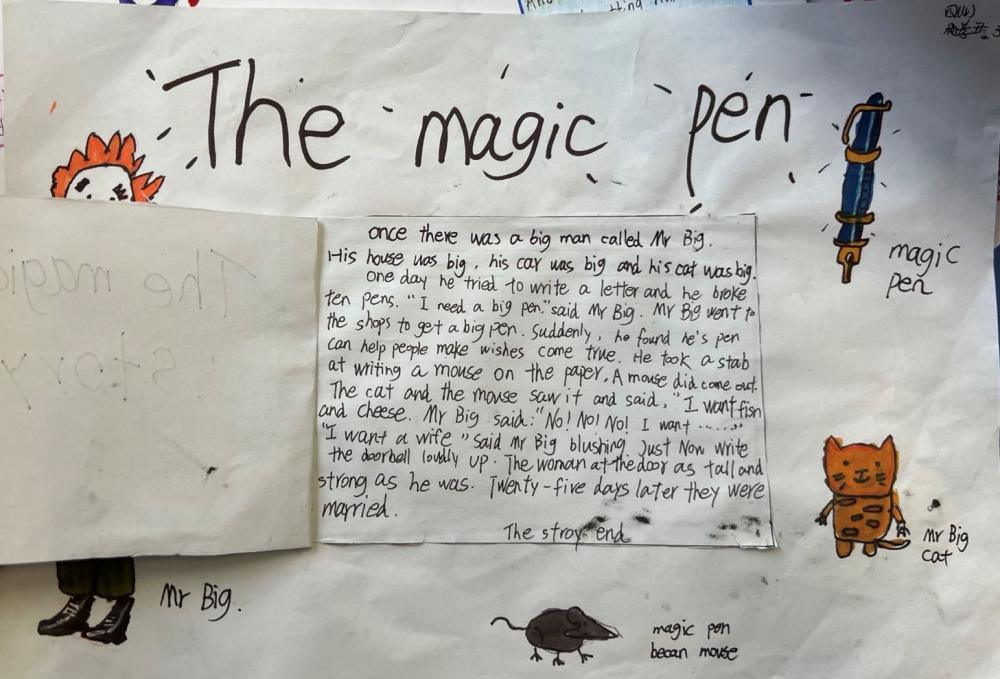 The magic pen
once there was a big man called Mr Big.
His house was big, his car was big and his cat was big.
one day he tried to write a letter and he broke
ten pens. "I need a big pen." said Mr Big. Mr Big went to
the shops to get a big pen. Suddenly, he found he's pen
can help people make wishes come true. He took a stab
at writing a mouse on the paper. A mouse did come out.
The cat and the mouse saw it and said, "I want fish
and cheese. Mr Big said: "No! No! No! I want ......"
"I want a wife" said Mr Big blushing. Just Now write
the doorbell loudly up. The woman at the door as tall and
strong as he was. Twenty-five days later they were
married.
The stroy end
magic
pen
Mr Big
cat
Mr Big.
magic pen
becan mouse
The magic
story